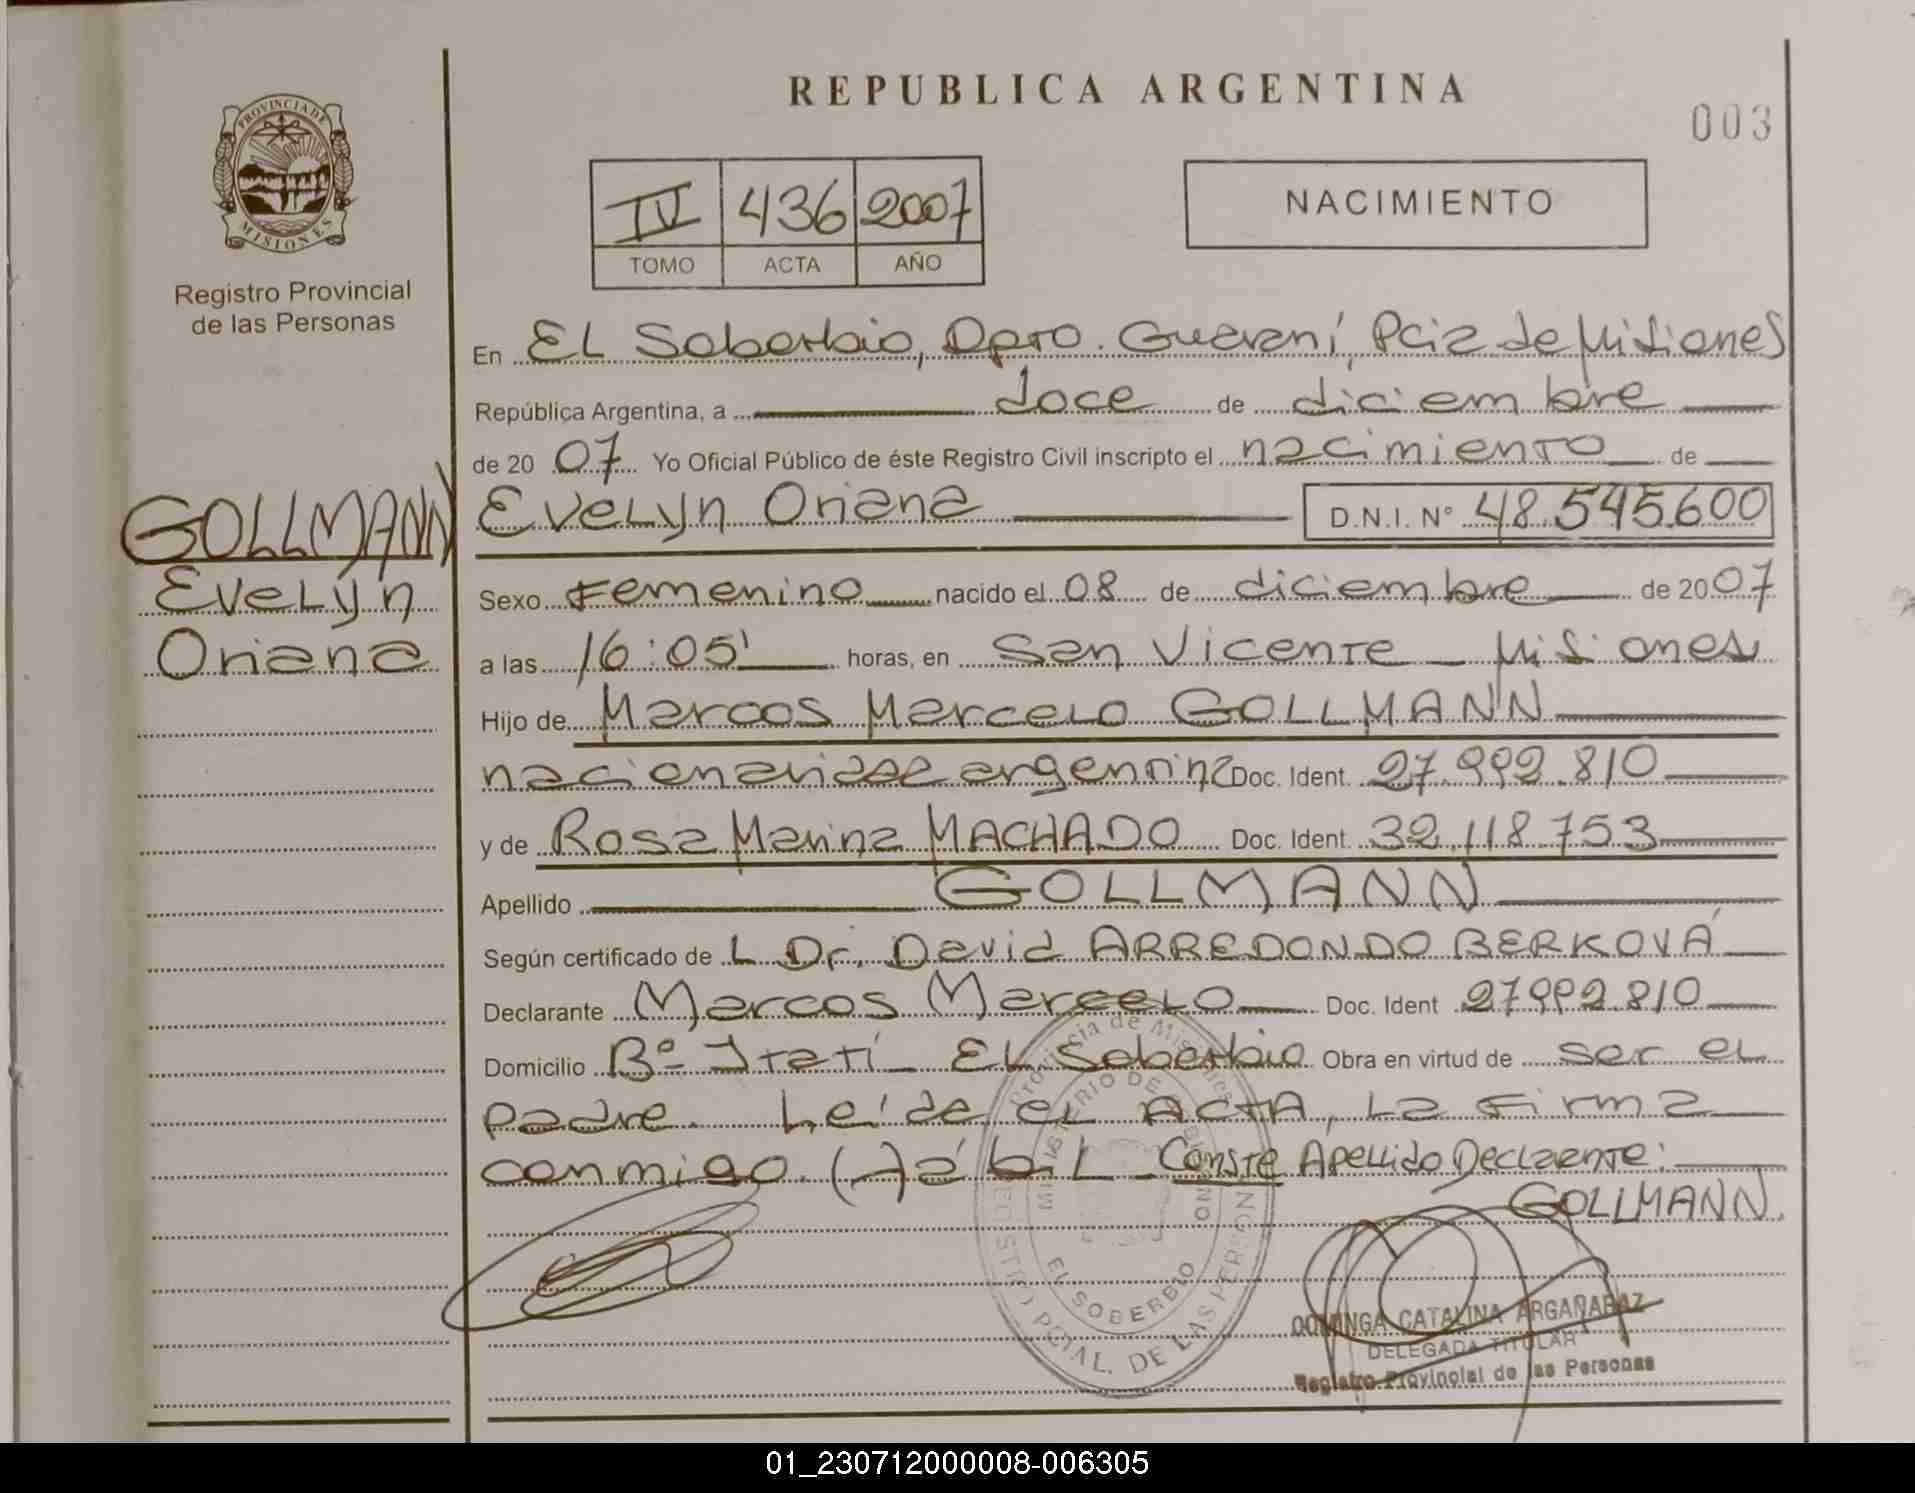 REPUBLICA ARGENTINA
003
PROVINCIA DE
MISIONES
Registro Provincial
de las Personas
IV 436 2007
TOMO ACTA AÑO
NACIMIENTO
En EL Soberbio, Dpto. Guaraní, Pcia de Misiones
República Argentina, a doce de diciembre
de 2007 Yo Oficial Público de éste Registro Civil inscripto el nacimiento de
GOLLMANN
Evelyn
Oriana
Evelyn Oriana D.N.I. N° 48.545.600
Sexo Femenino nacido el 08 de diciembre de 2007
a las 16:05' horas, en San Vicente - Misiones
Hijo de Marcos Marcelo GOLLMANN
nacionalidad argentina Doc. Ident. 27.992.810
y de Rosa Marina MACHADO Doc. Ident. 32.118.753
Apellido GOLLMANN
Según certificado de L Dr. David ARREDONDO BERKOVÁ
Declarante Marcos Marcelo Doc. Ident 27.992.810
Domicilio Bº Itatí - El Soberbio Obra en virtud de ser el
padre. Leída el ACTA, la firma
conmigo. Conste Apellido Declarante:
GOLLMANN.
Provincia de Misiones
MINISTERIO DE GOBIERNO
EL SOBERBIO
REGISTRO PCIAL. DE LAS PERSONAS
DOMINGA CATALINA ARGAÑARAZ
DELEGADA TITULAR
Registro Provincial de las Personas
01_230712000008-006305